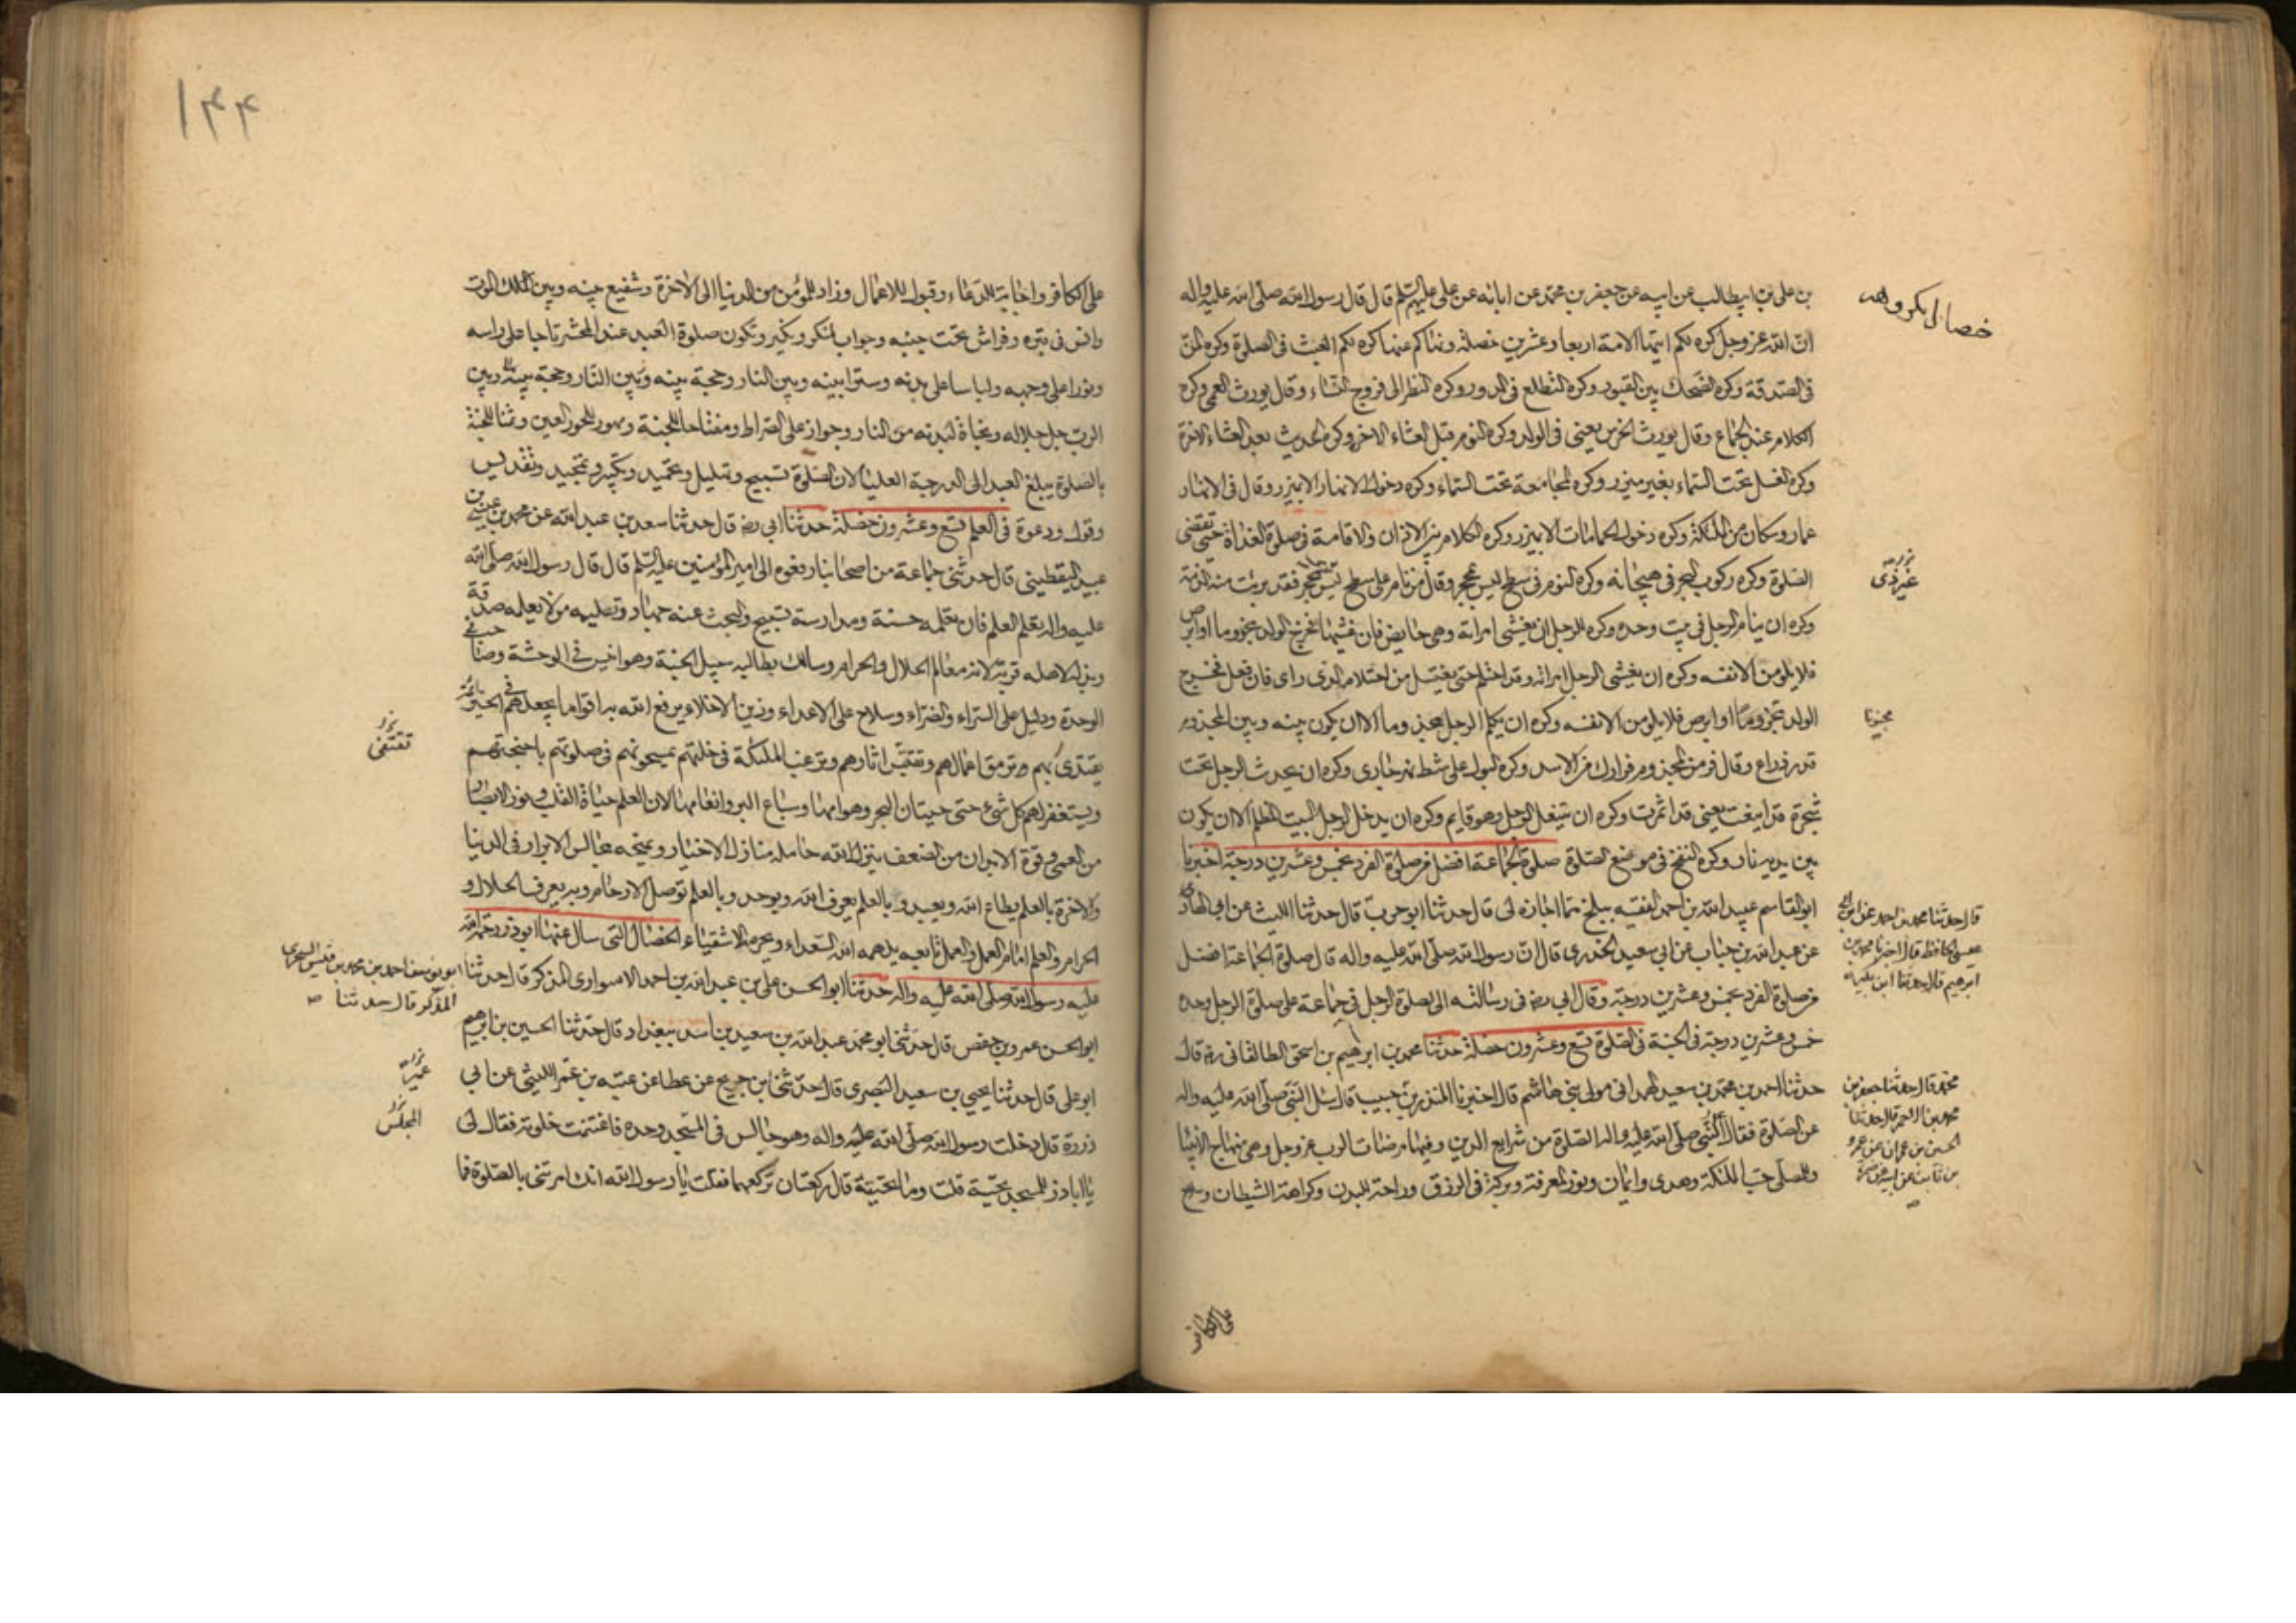 بن علی بن ابیطالب عن ابیه عن جعفر بن محمد عن ابائه عن علی علیهم السلم قال قال رسول الله صلی الله علیه واله
خصال مکروهه
ان الله عز وجل کره لکم ایتها الامة اربعا وعشرین خصلة ونهاکم عنها کره لکم العبث فی الصلوة وکره المن
فی الصدقة وکره الضحک بین القبور وکره التطلع فی الدور وکره النظر الی فروج النساء وقال یورث العمی وکره
الکلام عند الجماع وقال یورث الخرس یعنی فی الولد وکره النوم قبل العشاء الاخرة وکره الحدیث بعد العشاء الاخرة
وکره الغسل تحت السماء بغیر میزر وکره المجامعة تحت السماء وکره دخول الانهار الا بمیزر وقال فی الانهار
عمار وسکان من الملئکة وکره دخول الحمامات الا بمیزر وکره الکلام بین الاذان والاقامة فی صلوة الغداة حتی تقضی
الصلوة وکره رکوب البحر فی هیجانه وکره النوم فی سطح لیس بمحجر وقال من نام علی سطح لیس بمحجر فقد برئت منه الذمة
وکره ان ینام الرجل فی بیت وحده وکره للرجل ان یغشی امراته وهی حایض فان غشیها فخرج الولد مجذوما او ابرص
فلا یلومن الا نفسه وکره ان یغشی الرجل امراته وقد احتلم حتی یغتسل من احتلامه الذی رای فان فعل فخرج
الولد مجذوما او ابرص فلا یلومن الا نفسه وکره ان یکلم الرجل مجذوما الا ان یکون بینه وبین المجذوم
مجنونا
قدر ذراع وقال فر من المجذوم فرارک من الاسد وکره البول علی شط نهر جاری وکره ان یحدث الرجل تحت
شجرة قد اینعت یعنی قد اثمرت وکره ان یتنعل الرجل وهو قایم وکره ان یدخل الرجل البیت المظلم الا ان یکون
بین یدیه نار وکره النفخ فی موضع الصلوة صلوة الجماعة افضل من صلوة الفرد بخمس وعشرین درجة اخبرنا
ابو القاسم عبید الله بن احمد الفقیه ببلخ فیما اجازه لی قال حدثنا ابو حرب قال حدثنا اللیث عن ابن الهاد
عن عبد الله بن خباب عن ابی سعید الخدری قال ان رسول الله صلی الله علیه واله قال صلوة الجماعة افضل
من صلوة الفرد بخمس وعشرین درجة وقال ابی رضه فی رسالته الی لصلوة الرجل فی جماعة علی صلوة الرجل وحده
خمس وعشرین درجة فی الجنة فی الصلوة تسع وعشرون خصلة حدثنا محمد بن ابرهیم بن اسحق الطالقانی رضه قال
حدثنا احمد بن محمد بن سعید الهمدانی مولی بنی هاشم قال اخبرنا المنذر بن حبیب قال سئل النبی صلی الله علیه واله
عن الصلوة فقال النبی صلی الله علیه واله الصلوة من شرایع الدین وفیها مرضات الرب عز وجل وهی منهاج الانبیا
وللمصلی حب الملئکة وهدی وایمان ونور المعرفة وبرکة فی الرزق وراحة للبدن وکراهة الشیطان وسلاح
علی الکافر
۱۴۴
علی الکافر واجابة للدعاء وقبول للاعمال وزاد للمؤمن من الدنیا الی الاخرة وشفیع بینه وبین ملک الموت
وانس فی قبره وفراش تحت جنبه وجواب لمنکر ونکیر وتکون صلوة العبد عند المحشر تاجا علی راسه
ونورا علی وجهه ولباسا علی بدنه وسترا بینه وبین النار وحجة بینه وبین
الرب جل جلاله ونجاة لبدنه من النار وجواز علی الصراط ومفتاحا للجنة ومهور للحور العین وثمنا للجنة
بالصلوة یبلغ العبد الی الدرجة العلیا لان الصلوة تسبیح وتهلیل وتحمید وتکبیر وتمجید وتقدیس
وقول ودعوة فی العلم تسع وعشرون خصلة حدثنا ابی رضه قال حدثنا سعد بن عبد الله عن محمد بن عیسی بن
عبید الیقطینی قال حدثنی جماعة من اصحابنا رفعوه الی امیر المؤمنین علیه السلم قال قال رسول الله صلی الله
علیه واله تعلم العلم فان تعلمه حسنة ومدارسته تسبیح والبحث عنه جهاد وتعلیمه من لا یعلمه صدقة
وبذله لاهله قربة لانه معالم الحلال والحرام وسالک بطالبه سبیل الجنة وهو انیس فی الوحشة وصاحب فی
الوحدة ودلیل علی السراء والضراء وسلاح علی الاعداء وزین الاخلاء یرفع الله به اقواما یجعلهم فی الخیر ائمة
یقتدی بهم وترمق اعمالهم وتقتبس اثارهم وترغب الملئکة فی خلتهم یمسحونهم فی صلوتهم باجنحتهم
تقتفی
ویستغفر لهم کل شیء حتی حیتان البحر وهوامها وسباع البر وانعامها لان العلم حیاة القلب ونور الابصار
من العمی وقوة الابدان من الضعف ینزل الله حامله منازل الاخیار ویمنحه مجالس الابرار فی الدنیا
والاخرة بالعلم یطاع الله ویعبد وبالعلم یعرف الله ویوحد وبالعلم توصل الارحام وبه یعرف الحلال و
الحرام والعلم امام العمل والعمل تابعه یلهمه الله السعداء ویحرمه الاشقیاء الخصال التی سال عنها ابوذر رحمه الله
علیه رسول الله صلی الله علیه واله حدثنا ابو الحسن علی بن عبد الله بن احمد الاسواری المذکر قال حدثنا
المذکر قال حدثنا
ابو الحسن عمرو بن حفص قال حدثنی ابو محمد عبد الله بن سعید بن اسد ببغداد قال حدثنا الحسین بن ابرهیم
ابو علی قال حدثنا یحیی بن سعید البصری قال حدثنی ابن جریج عن عطا عن عتبة بن عمر اللیثی عن ابی
ذر ره قال دخلت رسول الله صلی الله علیه واله وهو جالس فی المسجد وحده فاغتنمت خلوته فقال لی
یا اباذر للمسجد تحیة قلت وما تحیته قال رکعتان ترکعهما فقلت یا رسول الله انک امرتنی بالصلوة فما